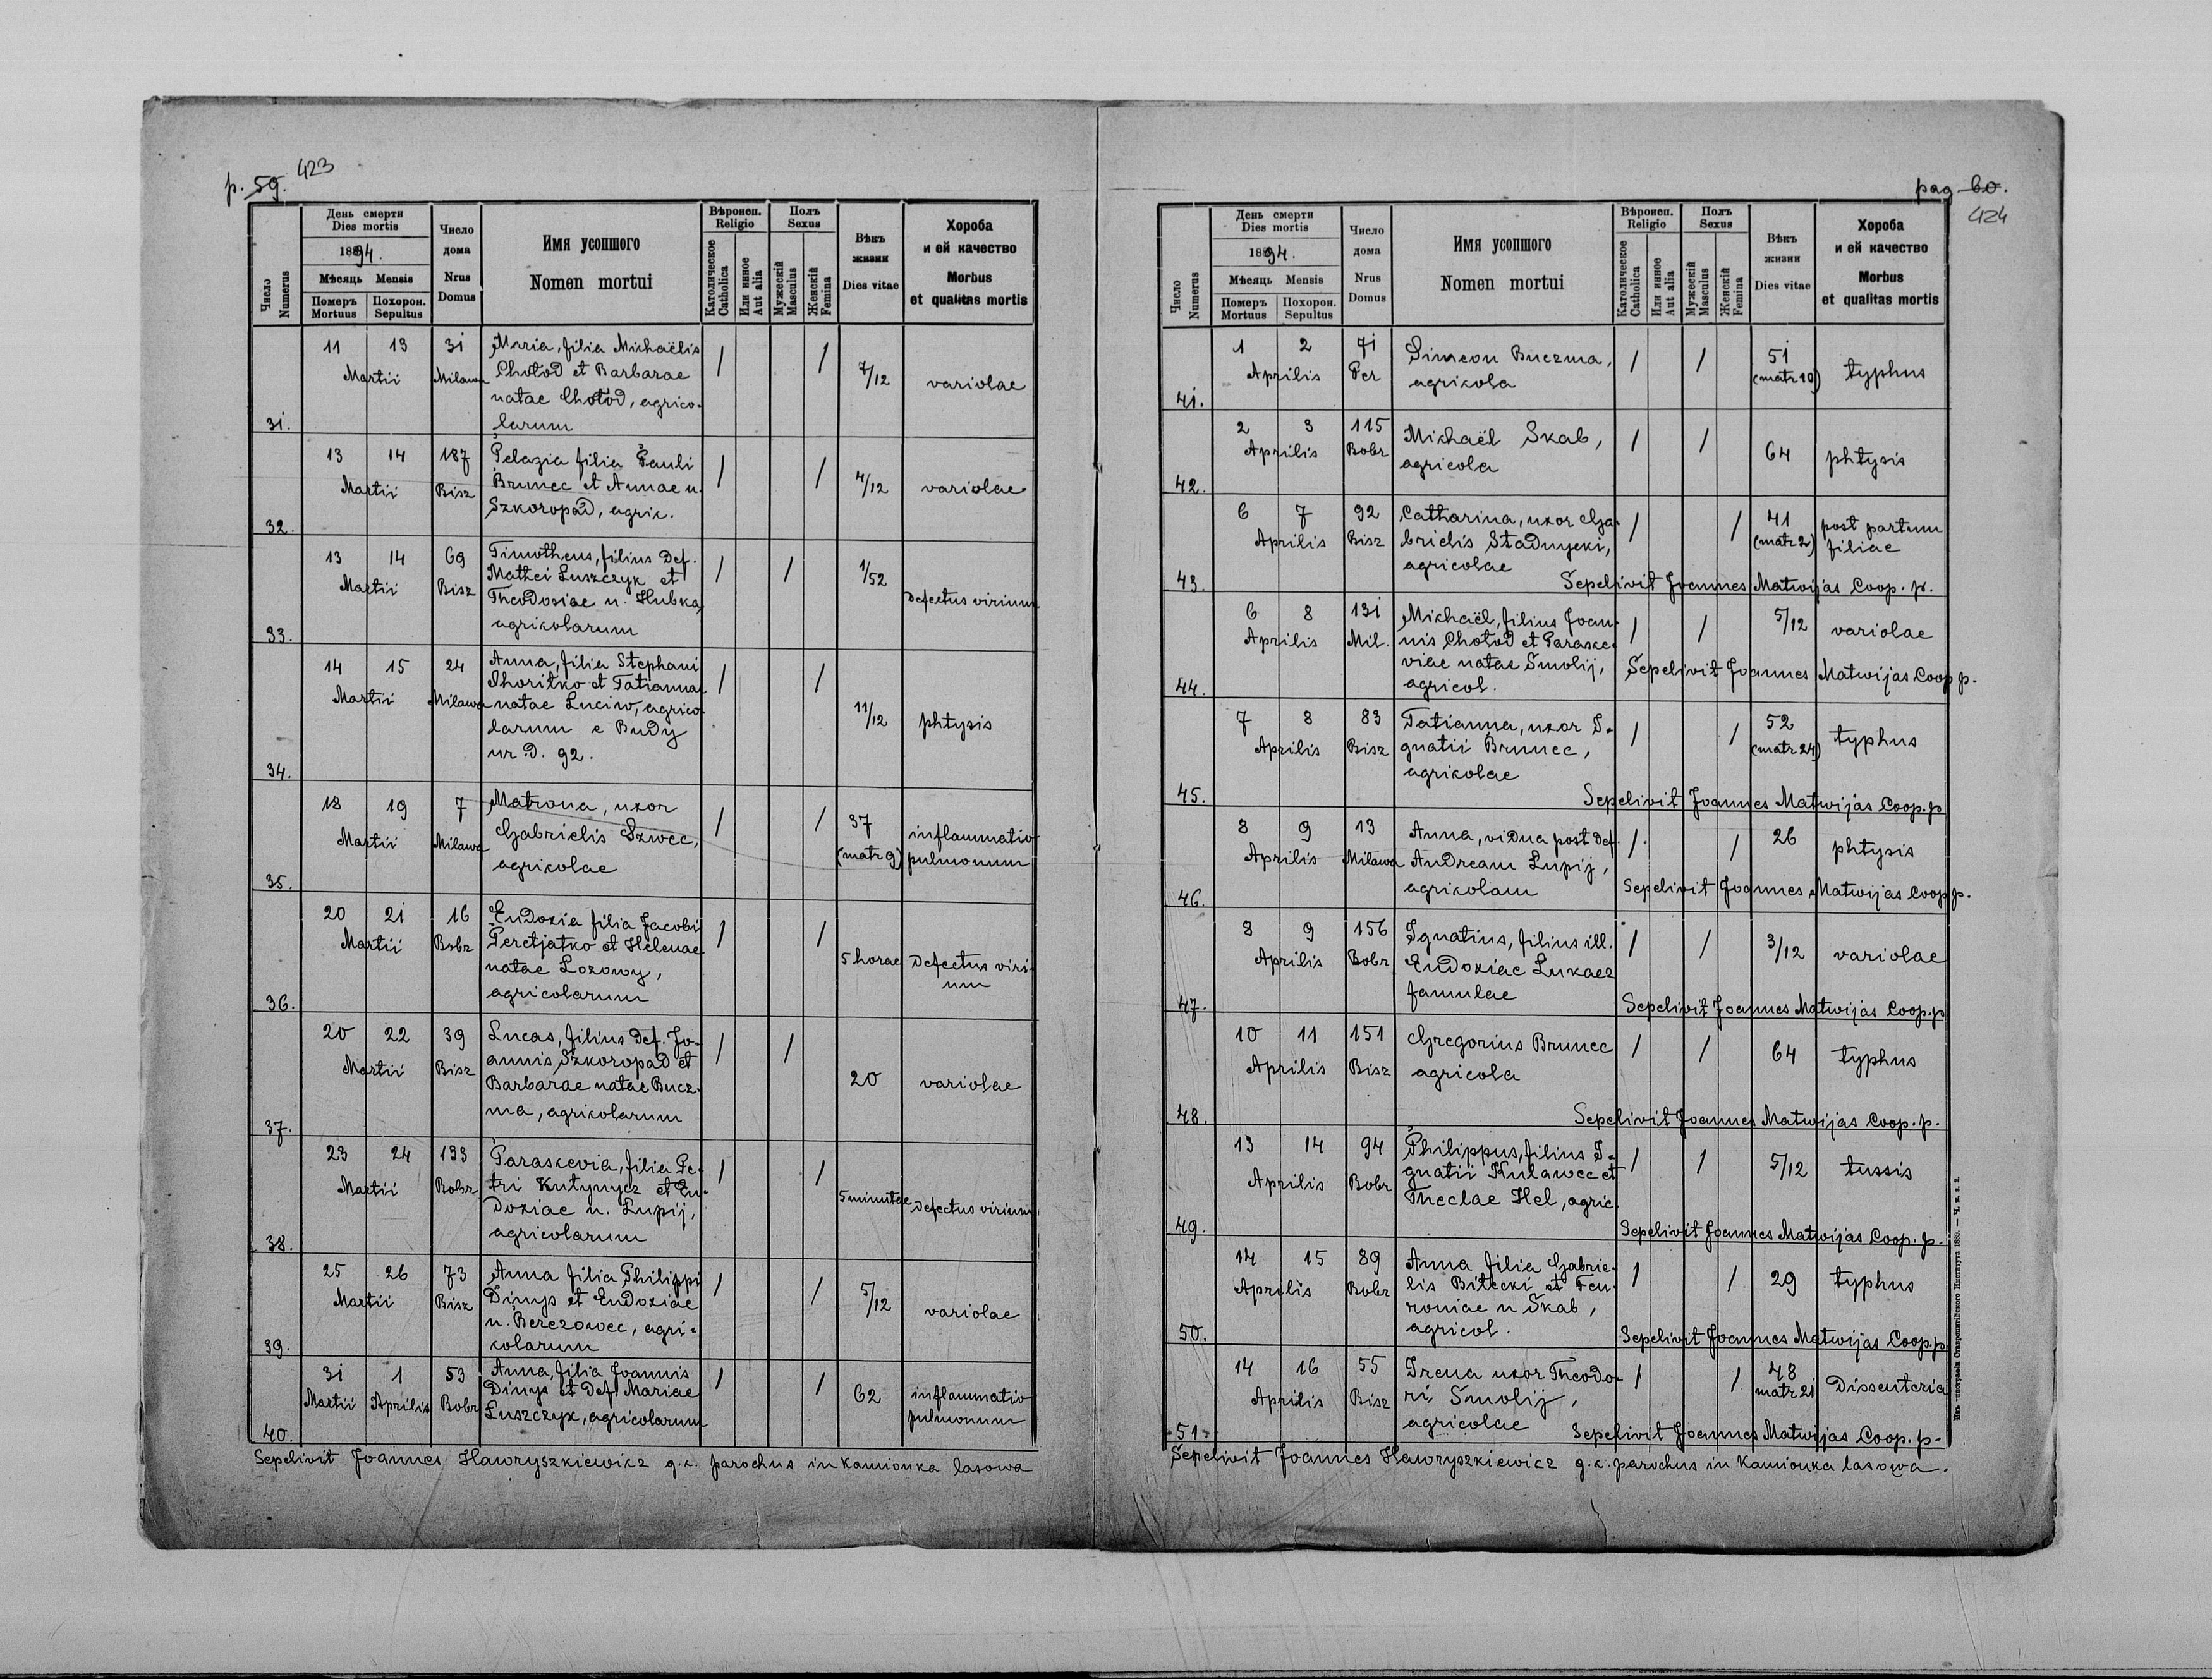 p. 59. 423
День смерти
Dies mortis
1894.
Мѣсяць Mensis
Померъ
Mortuus
Похорон.
Sepultus
Число
Numerus
Число
дома
Nrus
Domus
Имя усопшого
Nomen mortui
Вѣроисп.
Religio
Католическое
Catholica
Или инное
Aut alia
Полъ
Sexus
Мужескій
Masculus
Женскій
Femina
Вѣкъ
жизни
Dies vitae
Хороба
и ей качество
Morbus
et qualitas mortis
31. 11 13 Martii 31 Milawa
Maria, filia Michaëlis
Chołod et Barbarae
natae Chołod, agrico-
larum
/ / 7/12 variolae
32. 13 14 Martii 187 Bisz
Pelazia filia Pauli
Brunec et Annae n.
Szkoropad, agric.
/ / 4/12 variolae
33. 13 14 Martii 69 Bisz
Timotheus, filius def.
Mathei Łuszczyk et
Theodosiae n. Hubka,
agricolarum
/ / 1/52 defectus virium
34. 14 15 Martii 24 Milawa
Anna, filia Stephani
Ihoritko et Tatiannae
natae Luciw, agrico-
larum e Budy
nr d. 92.
/ / 11/12 phtysis
35. 18 19 Martii 7 Milawa
Matrona, uxor
Gabrielis Szwec,
agricolae
/ / 37 (matr 9)
inflammatio
pulmonum
36. 20 21 Martii 16 Bobr
Eudoxia filia Jacobi
Peretjatko et Helenae
natae Lozowy,
agricolarum
/ / 5 horae defectus viri-
um
37. 20 22 Martii 39 Bisz
Lucas, filius def. Jo-
annis Szkoropad et
Barbarae natae Bucz-
ma, agricolarum
/ / 20 variolae
38. 23 24 Martii 133 Bobr
Paraskevia, filia Pe-
tri Kutynycz et Eu-
doxiae n. Łupij,
agricolarum
/ / 5 minutae defectus virium
39. 25 26 Martii 73 Bisz
Anna filia Philippi
Dinys et Eudoxiae
n. Berezowec, agri-
colarum
/ / 5/12 variolae
40. 31 Martii 1 Aprilis 53 Bobr
Anna, filia Joannis
Dinys et def. Mariae
Łuszczyk, agricolarum
/ / 62 inflammatio
pulmonum
Sepelivit Joannes Hawryszkiewicz g. c. parochus in Kamionka lasowa
pag 60.
424
День смерти
Dies mortis
1894.
Мѣсяць Mensis
Померъ
Mortuus
Похорон.
Sepultus
Число
Numerus
Число
дома
Nrus
Domus
Имя усопшого
Nomen mortui
Вѣроисп.
Religio
Католическое
Catholica
Или инное
Aut alia
Полъ
Sexus
Мужескій
Masculus
Женскій
Femina
Вѣкъ
жизни
Dies vitae
Хороба
и ей качество
Morbus
et qualitas mortis
41. 1 2 Aprilis 71 Per
Simeon Buczma,
agricola
/ / 51 (matr 10) typhus
42. 2 3 Aprilis 115 Bobr
Michaël Skab,
agricola
/ / 64 phtysis
43. 6 7 Aprilis 92 Bisz
Catharina, uxor Ga-
brielis Stadnycki,
agricolae
/ / 41 (matr 2) post partum
filiae
Sepelivit Joannes Matwijas Coop. p.
44. 6 8 Aprilis 131 Mil.
Michaël, filius Joan-
nis Chołod et Paraske-
viae natae Smolij,
agricol.
/ / 5/12 variolae
Sepelivit Joannes Matwijas Coop p.
45. 7 8 Aprilis 83 Bisz
Tatianna, uxor I-
gnatii Brunec,
agricolae
/ / 52 (matr 24) typhus
Sepelivit Joannes Matwijas Coop. p
46. 8 9 Aprilis 13 Milawa
Anna, vidua post def.
Andream Łupij,
agricolam
/ / 26 phtysis
Sepelivit Joannes Matwijas Coop p.
47. 8 9 Aprilis 156 Bobr
Ignatius, filius ill.
Eudoxiae Lukacz
famulae
/ / 3/12 variolae
Sepelivit Joannes Matwijas Coop. p
48. 10 11 Aprilis 151 Bisz
Gregorius Brunec
agricola
/ / 64 typhus
Sepelivit Joannes Matwijas Coop. p.
49. 13 14 Aprilis 94 Bobr
Philippus, filius I-
gnatii Kulawec et
Theclae Hel, agric.
/ / 5/12 tussis
Sepelivit Joannes Matwijas Coop. p.
50. 14 15 Aprilis 89 Bobr
Anna filia Gabrie-
lis Biłecki et Feu-
roniae n Skab,
agricol.
/ / 29 typhus
Sepelivit Joannes Matwijas Coop. p
51. 14 16 Aprilis 55 Bisz
Irena uxor Theodo-
ri Smolij,
agricolae
/ / 48 matr 21 dissenteria
Sepelivit Joannes Matwijas Coop. p-
Sepelivit Joannes Hawryszkiewicz g. c. parochus in Kamionka lasowa.
Изъ типографіи Ставропигійского Института 1889. — Ч. и. в. 2.